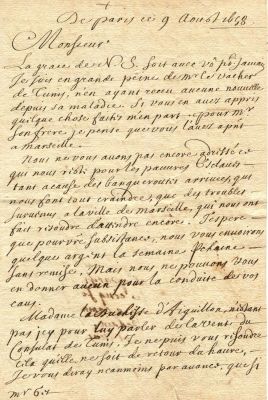 De paris ce 9 Aoust 1658
Monsieur
La grace de N. S. soit avec vo9 po'r jamais
Je suis en grande peine de mr le vacher
de Tunis, n'en ayant receu aucune nouvelle
depuis sa maladie. Si vous en avez appris
quelque chose faites m'en part. pour mr
son frère, je pense que vous l'avez apris
a marseille.
Nous ne vous avons pas encore adressé ce
qui nous reste pour les pauvres Esclaves
tant a cause des banqueroutes arrivees, qui
nous font tout craindre, que des troubles
survenus a la ville de marseille, qui nous ont
fait résoudre d'attendre encore. J'espere
que pour vre subsistance, nous vous envoirons
quelques argent la semaine prochaine
sans remise. Mais nous ne pouvons vous
en donner aucun pour la conduite de vos
eaus.
Madame la Duchesse d'Eguillon, n'estant
pas icy pour luy parler de la vente du
Consulat de Tunis, Je ne puis vous résoudre
cela qu'elle ne soit de retour du havre,
Je vous diray neanmoins par avance, que si
mr